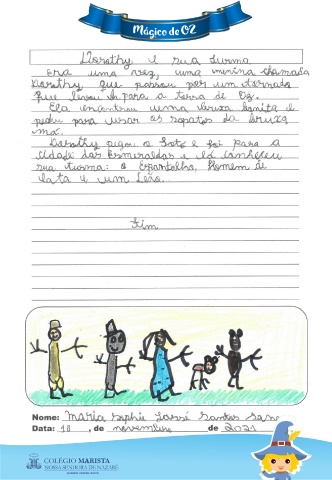 Mágico de OZ
Dorothy e sua turma
Era uma vez, uma menina chamada
Dorothy, que passou por um tornado
que levou para a terra de Oz.
Ela encontrou uma bruxa bonita e
pediu para usar os sapatos da bruxa
má.
Dorothy pegou o Totó e foi para a
cidade das Esmeraldas e lá conheceu
sua turma: o Espantalho, Homem de
lata e um Leão.
Fim
Nome: Maria Sophie Santos
Data: 18 , de novembro de 2021
COLÉGIO MARISTA
NOSSA SENHORA DE NAZARÉ